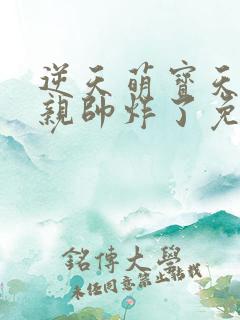 逆天萌寶天
親帥炸了免
銘傳大學
未經同意禁止轉載